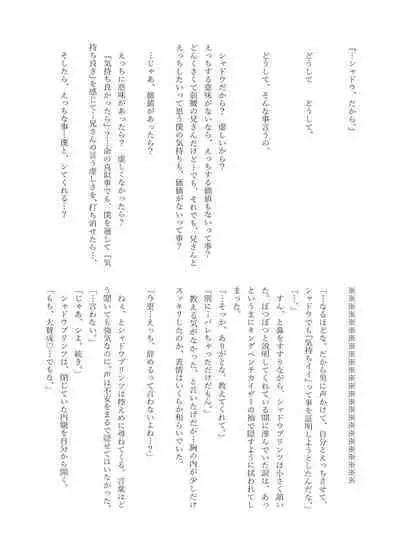 『…シャドウ、だから。』
どうして　どうして、
どうして、そんな事言うの、
シャドウだから？　虚しいから？
えっちする意味がないなら、えっちする価値もないって事？
どんくさくて剣腰の兄さんだけど…でも、それでも、兄さんと
えっちしたいって思う僕の気持ちも、価値がないって事？
…じゃあ、価値があったら？
えっちに意味があったら？　虚しくなかったら？
『気持ち良かったら』？…命の真似事でも、僕を通して『気
持ち良さ』を感じて…兄さんの言う虚しさを、打ち消せたら…、
そしたら、えっちな事…僕と、シてくれる…？
※※※※※※※※※※※※※※※※※※
「…なるほどな。だから男に声かけて、自分とえっちさせて、
シャドウでも『気持ちイイ』って事を証明しようとしたんだな。」
「…。」
すん、と鼻をすすりながら、シャドウプリンツは小さく頷い
た。ぽつぽつと説明してくれている間に滲んでいた涙は、あっ
というまにキングペンチカイザーの袖で隠すように拭われてし
まった。
「…そっか、ありがとな、教えてくれて。」
「別に…バレちゃっただけだもん。」
教える気がなかった、と言いたげだが…胸の内が少しだけ
スッキリしたのか、表情はいくらか和らいでいた。
「今更…えっち、辞めるって言わないよね…？」
ねえ、とシャドウプリンツは控えめに尋ねてくる。言葉はど
う聞いても強気なのに、声は不安をまるで隠せてはいなかった。
「…言わない。」
「じゃあ、シよ、続き。」
シャドウプリンツは、閉じていた内腿を自分から開く。
「もち、大賛成♡…でもな。」